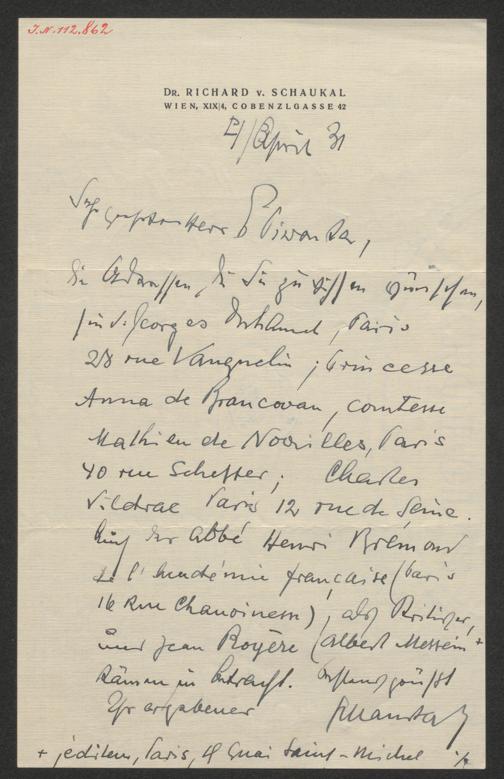 I.N. 112.862
DR. RICHARD v. SCHAUKAL
WIEN, XIX/4, COBENZLGASSE 42
April 31
Sehr geehrter Herr
die Adressen, die Sie zu wissen wünschen,
sind: Georges Duhamel, Paris
28 rue Vauquelin; Princesse
Anna de Brancovan, comtesse
Mathieu de Noailles, Paris
40 rue Scheffer; Charles
Vildrac Paris 12 rue de Seine.
Auch der Abbé Henri Brémond
de l'Académie française (Paris
16 Rue Chanoinesse), als Kritiker,
und Jean Royère (Albert Messein +
kämen in Betracht.
Ihr ergebener
Schaukal
+ éditeur, Paris, Quai Saint-Michel